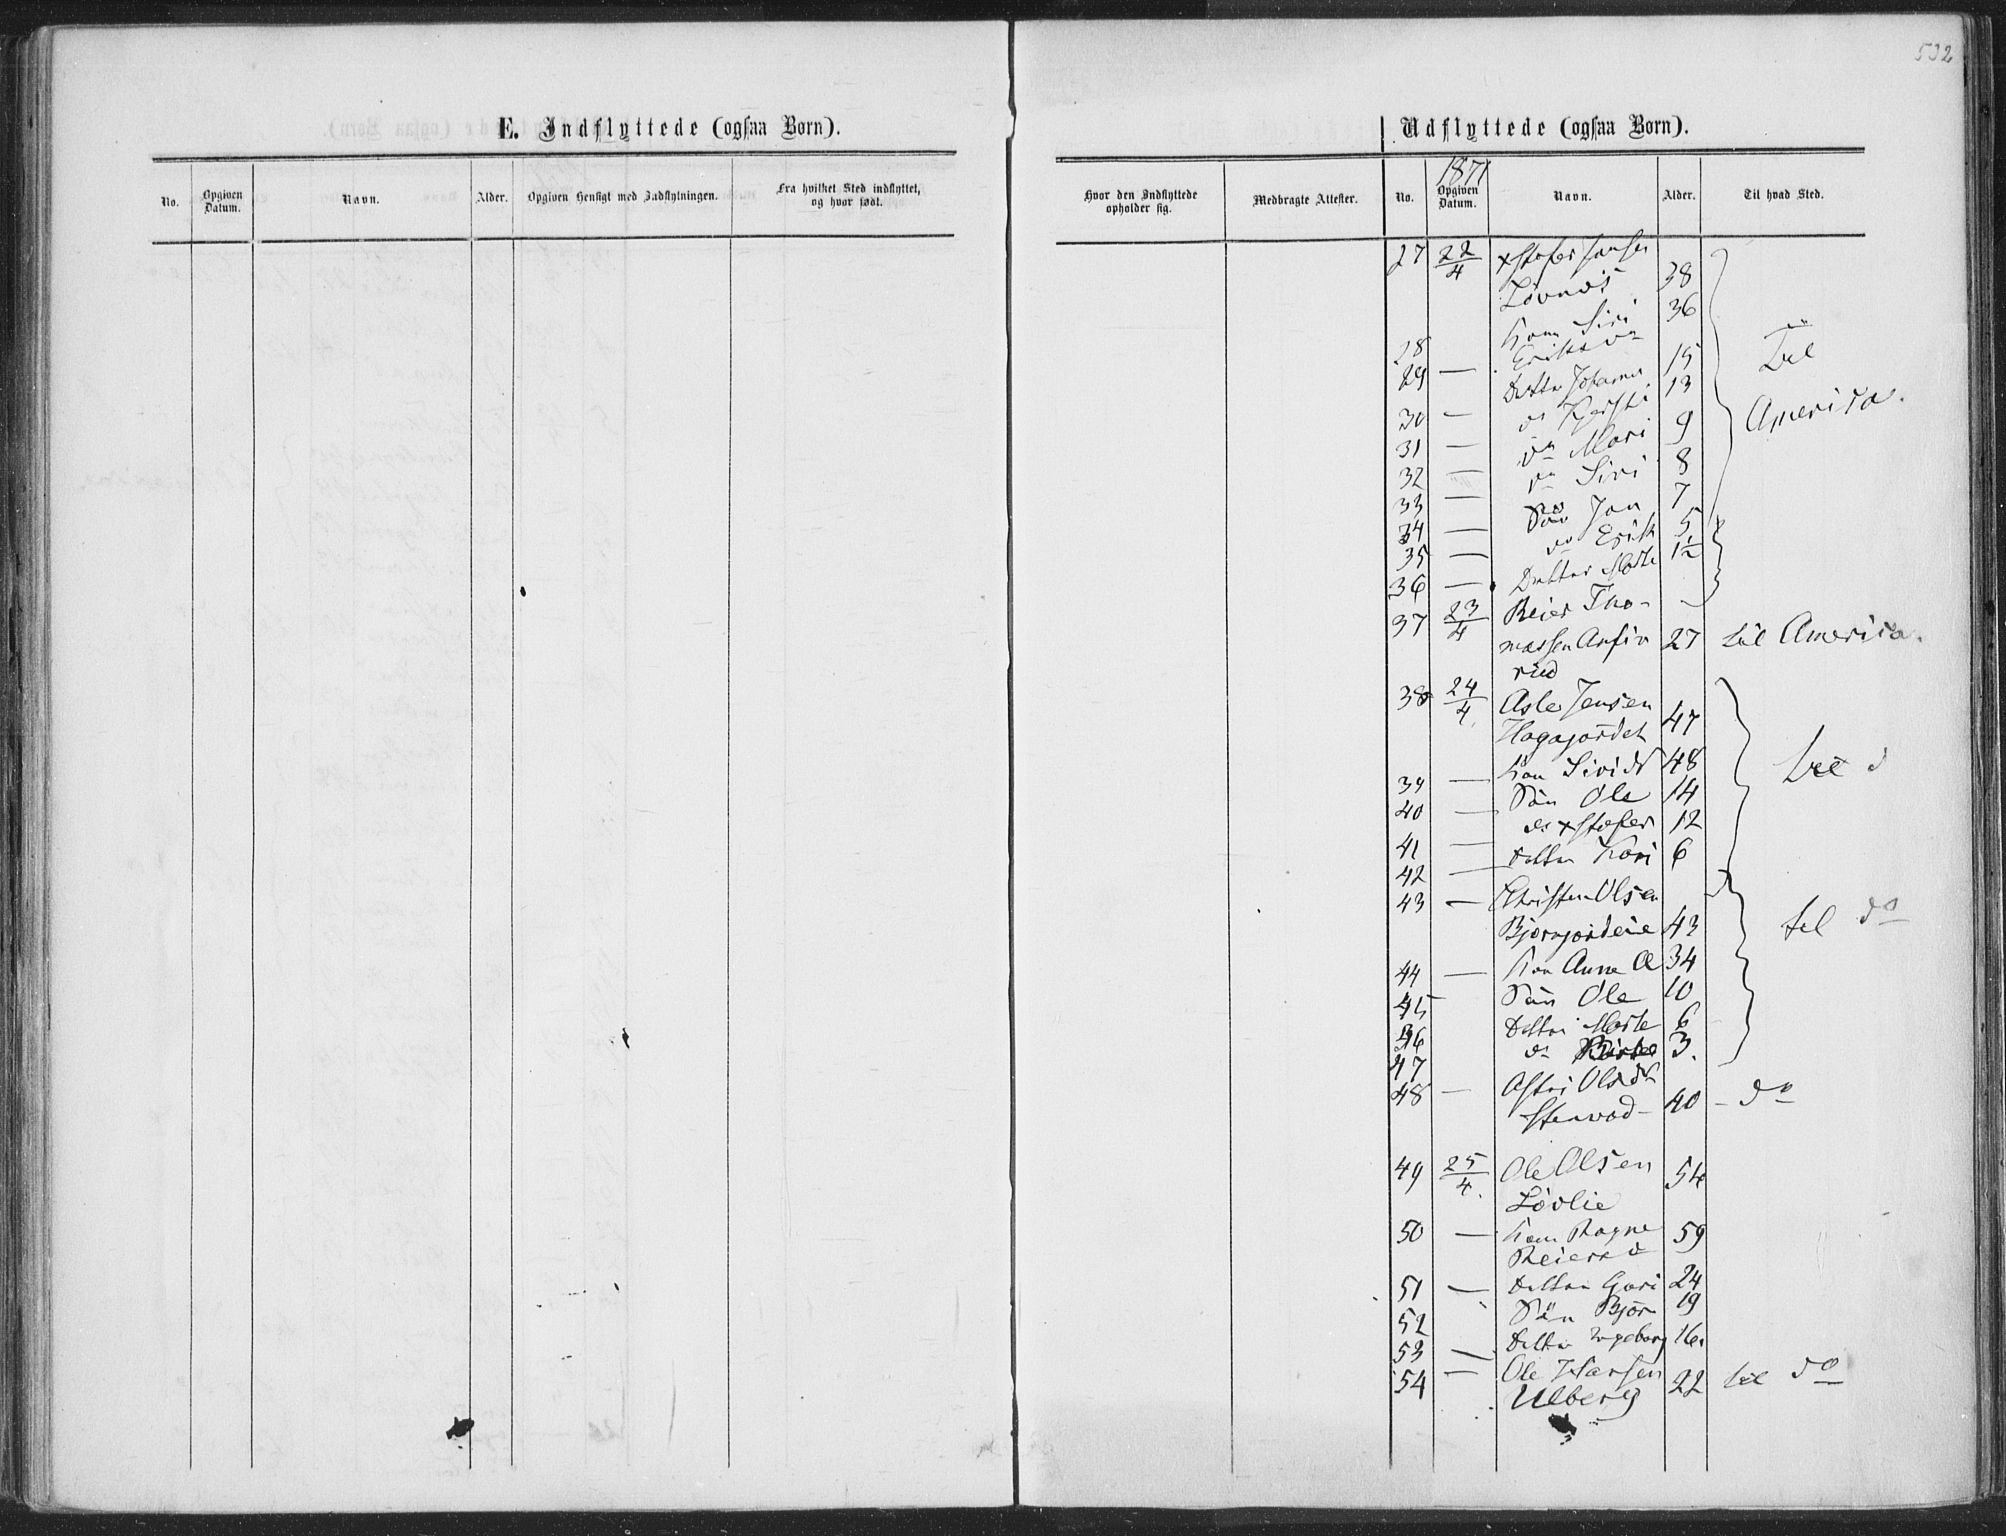 532
E. Indflyttede (ogsaa Børn).
No. Opgiven Datum. Navn. Alder. Opgiven Hensigt med Indflytningen. Fra hvilket Sted indflyttet, og hvor født.
Udflyttede (ogsaa Børn).
1871
Hvor den Indflyttede opholder sig. Medbragte Attester. No. Opgiven Datum. Navn. Alder. Til hvad Sted.
27 22/4 Xstofer
38
28 Kone Siri 36
29 — 15
30 — do Kjersti 13
31 — do Mari 9
32 — do Siri 8
33 — Søn Jon 7
34 — do Erik 5
35 — Datter 1½
Til
America.
36 —
37 23/4 Reier Tho-
massen Arfin 27 til America.
rud
38 24/4 Asle Jensen
Hagajordet 47
39 — Kon Siri 48
40 — Søn Ole 14
41 — do Xstofer 12
42 — Datter Kari 6
til d
43 — Christen Olsen
Bjørnjordeie 43
44 — Kon Anne O 34
45 Søn Ole 10
46 Datter Marte 6
47 do 3.
til do
48 — Olsd
40 — do
49 25/4 Ole Olsen 54
Lövlie
50 — Kone Ragne 59
Reiersd
51 — Datter Guri 24
52 Søn Bjør 19
53 — Datter Ingeborg 16.
54 — Ole
Ulberg 22 til do